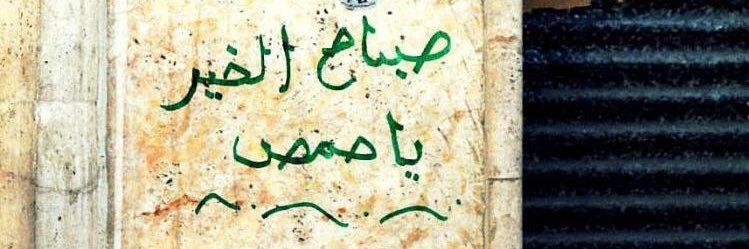 صباح الخير
يا حمص